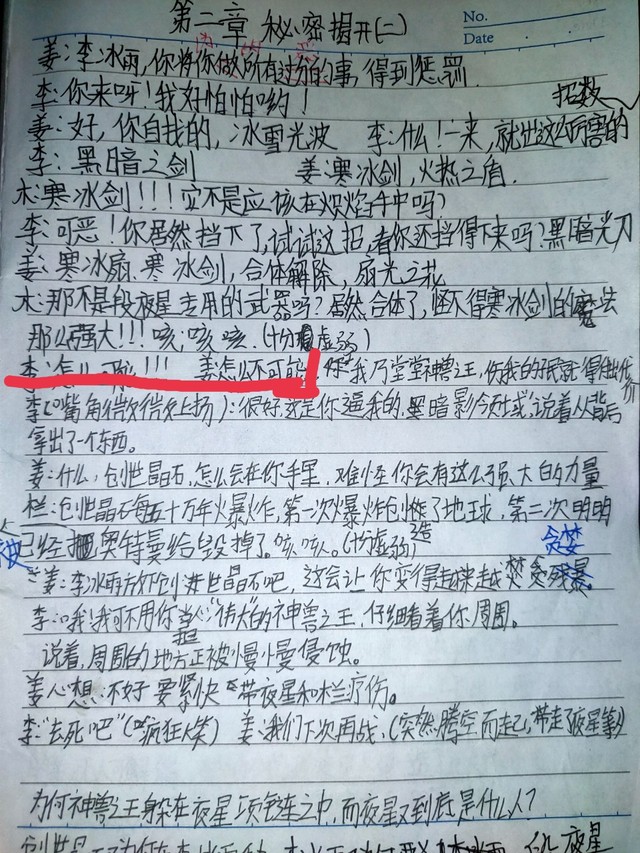 第二章 秘密揭开(二)
No.
Date
姜:李冰雨,你将你做所有过份的事,得到惩罚
李:你来呀!我好怕怕哟!
招数
姜:好,你自找的,冰雪光波 李:什么!一来,就出这么厉害的
李:黑暗之剑 姜:寒冰剑,火热之盾.
木:寒冰剑!!!它不是应该在炽焰手中吗?
李:可恶!你居然挡下了,试试这招,看你还挡得下来吗?黑暗光刀
姜:寒冰扇、寒冰剑,合体解除,扇光之裁
木:那不是段夜星专用的武器吗?居然合体了,怪不得寒冰剑的魔法
那么强大!!!咳,咳咳.(十分虚弱)
李:怎么可能!!! 姜怎么不可能 你 我乃堂堂神兽之王,伤我的子民就得付出代价
李(嘴角微微上扬):很好,这是你逼我的,黑暗影 说着从背后
拿出了一个东西。
姜:什么,创世晶石,怎么会在你手里,难怪你会有这么强大的力量
栏:创世晶石每五十万年火爆炸,第一次爆炸创造了地球,第二次明明
已经被奥特曼给毁掉了。咳咳。(十分虚弱)
贪婪
姜:李冰雨放下创世晶石吧,这会让你变得越来越贪婪残暴。
李:我!我可不用你担心“伟大”的神兽之王,仔细看着你周围。
说着,周围的地方正被慢慢侵蚀。
姜心想:不好要紧快带夜星和木兰疗伤。
李:“去死吧”(疯狂大笑) 姜:我们下次再战,(突然腾空而起,带走了夜星等)
为何神兽之王身躲在夜星项链之中,而夜星又到底是什么人?